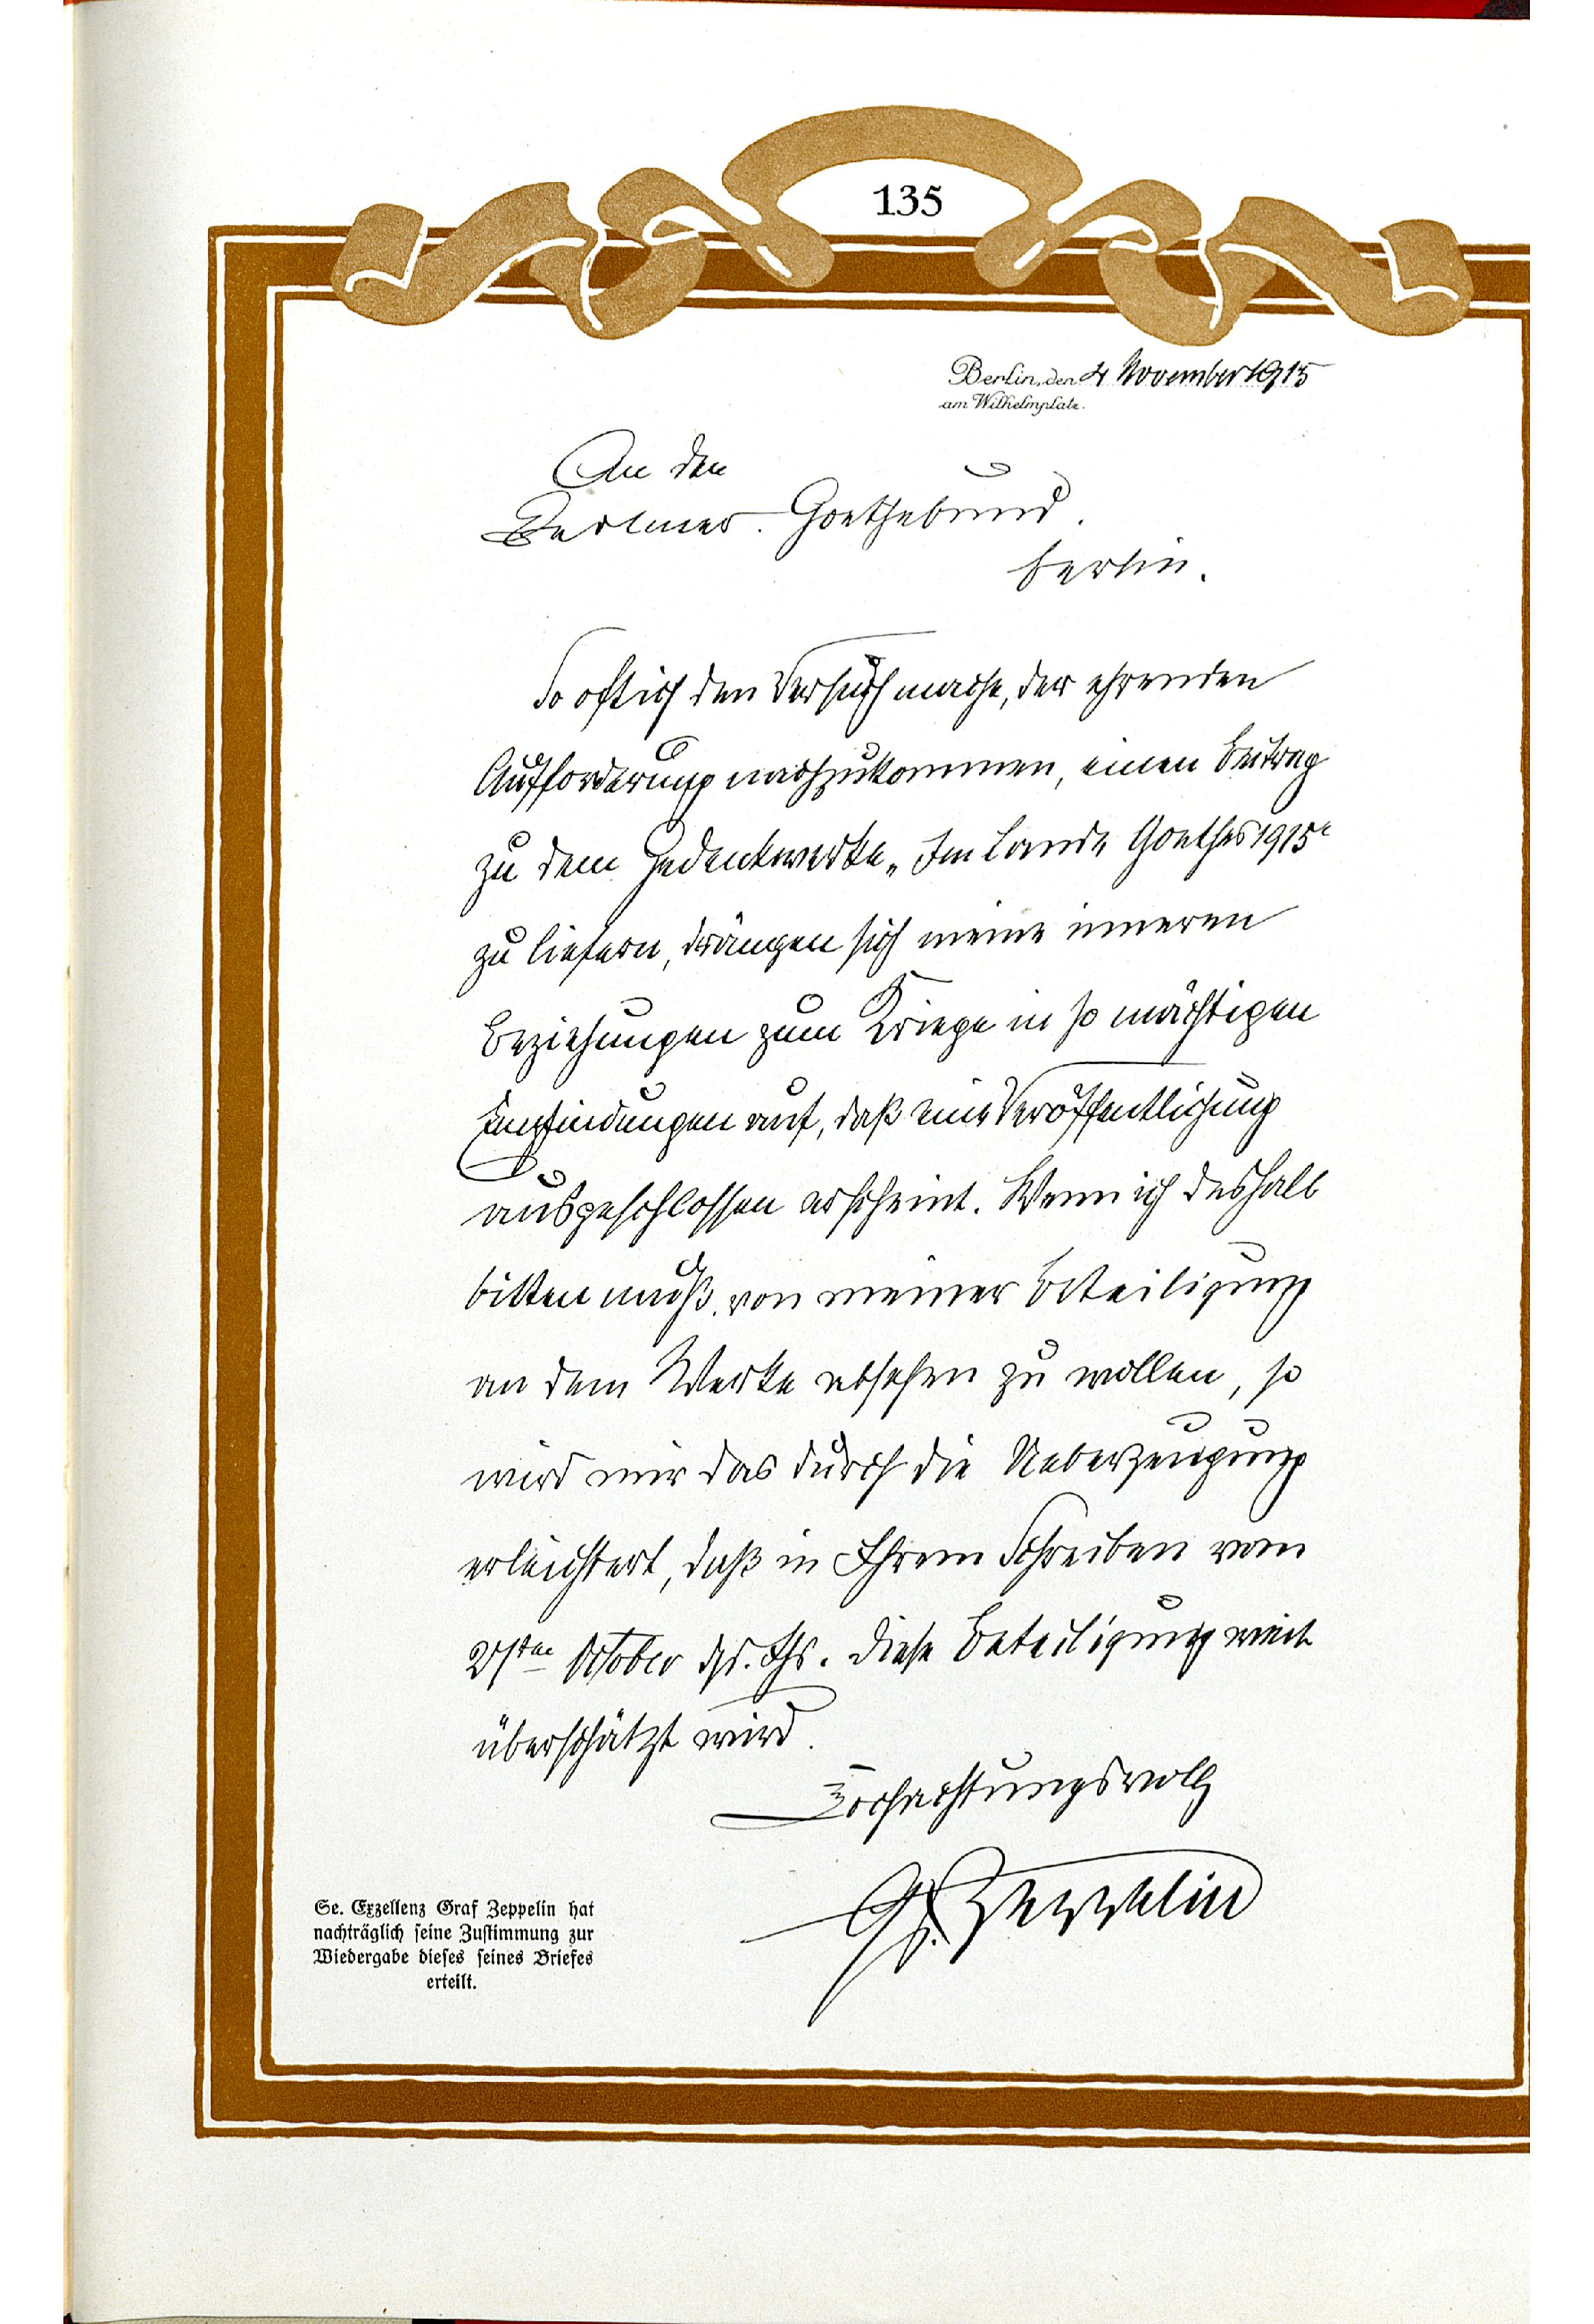 135
Berlin, den 4 November 1915
am Wilhelmplatz.
An den
Berliner Goethebund.
Berlin.
So oft ich den Versuch mache, der ehrenden
Aufforderung nachzukommen, einen Beitrag
zu dem Gedenkwerke „Im Lande Goethes 1915“
zu liefern, drängen sich meine inneren
Beziehungen zum Kriege in so mächtigen
Empfindungen auf, daß eine Veröffentlichung
ausgeschlossen erscheint. Wenn ich deshalb
bitten muß, von meiner Beteiligung
an dem Werke absehen zu wollen, so
wird mir das durch die Ueberzeugung
erleichtert, daß in Ihrem Schreiben vom
October ds. Js. diese Beteiligung weit
überschätzt wird.
Hochachtungsvoll
Gf. Zeppelin
Se. Exzellenz Graf Zeppelin hat
nachträglich seine Zustimmung zur
Wiedergabe dieses seines Briefes
erteilt.